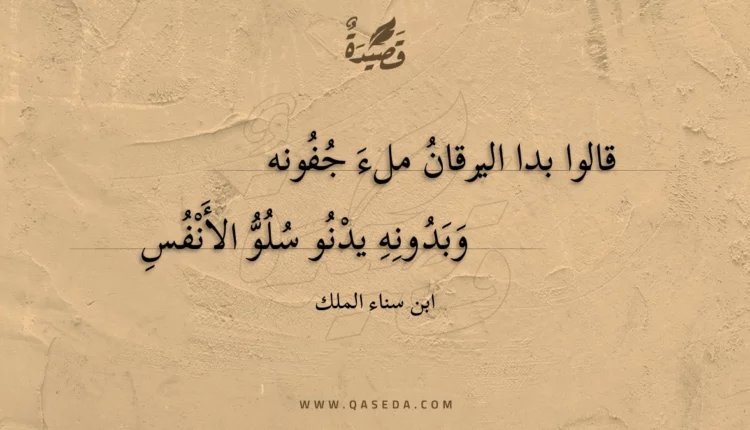 قَصِيْدَةٌ
قالوا بدا اليرقانُ ملءَ جُفُونه
وَبَدُونِهِ يدْنُو سُلُوُّ الأَنْفُسِ
ابن سناء الملك
WWW.QASEDA.COM